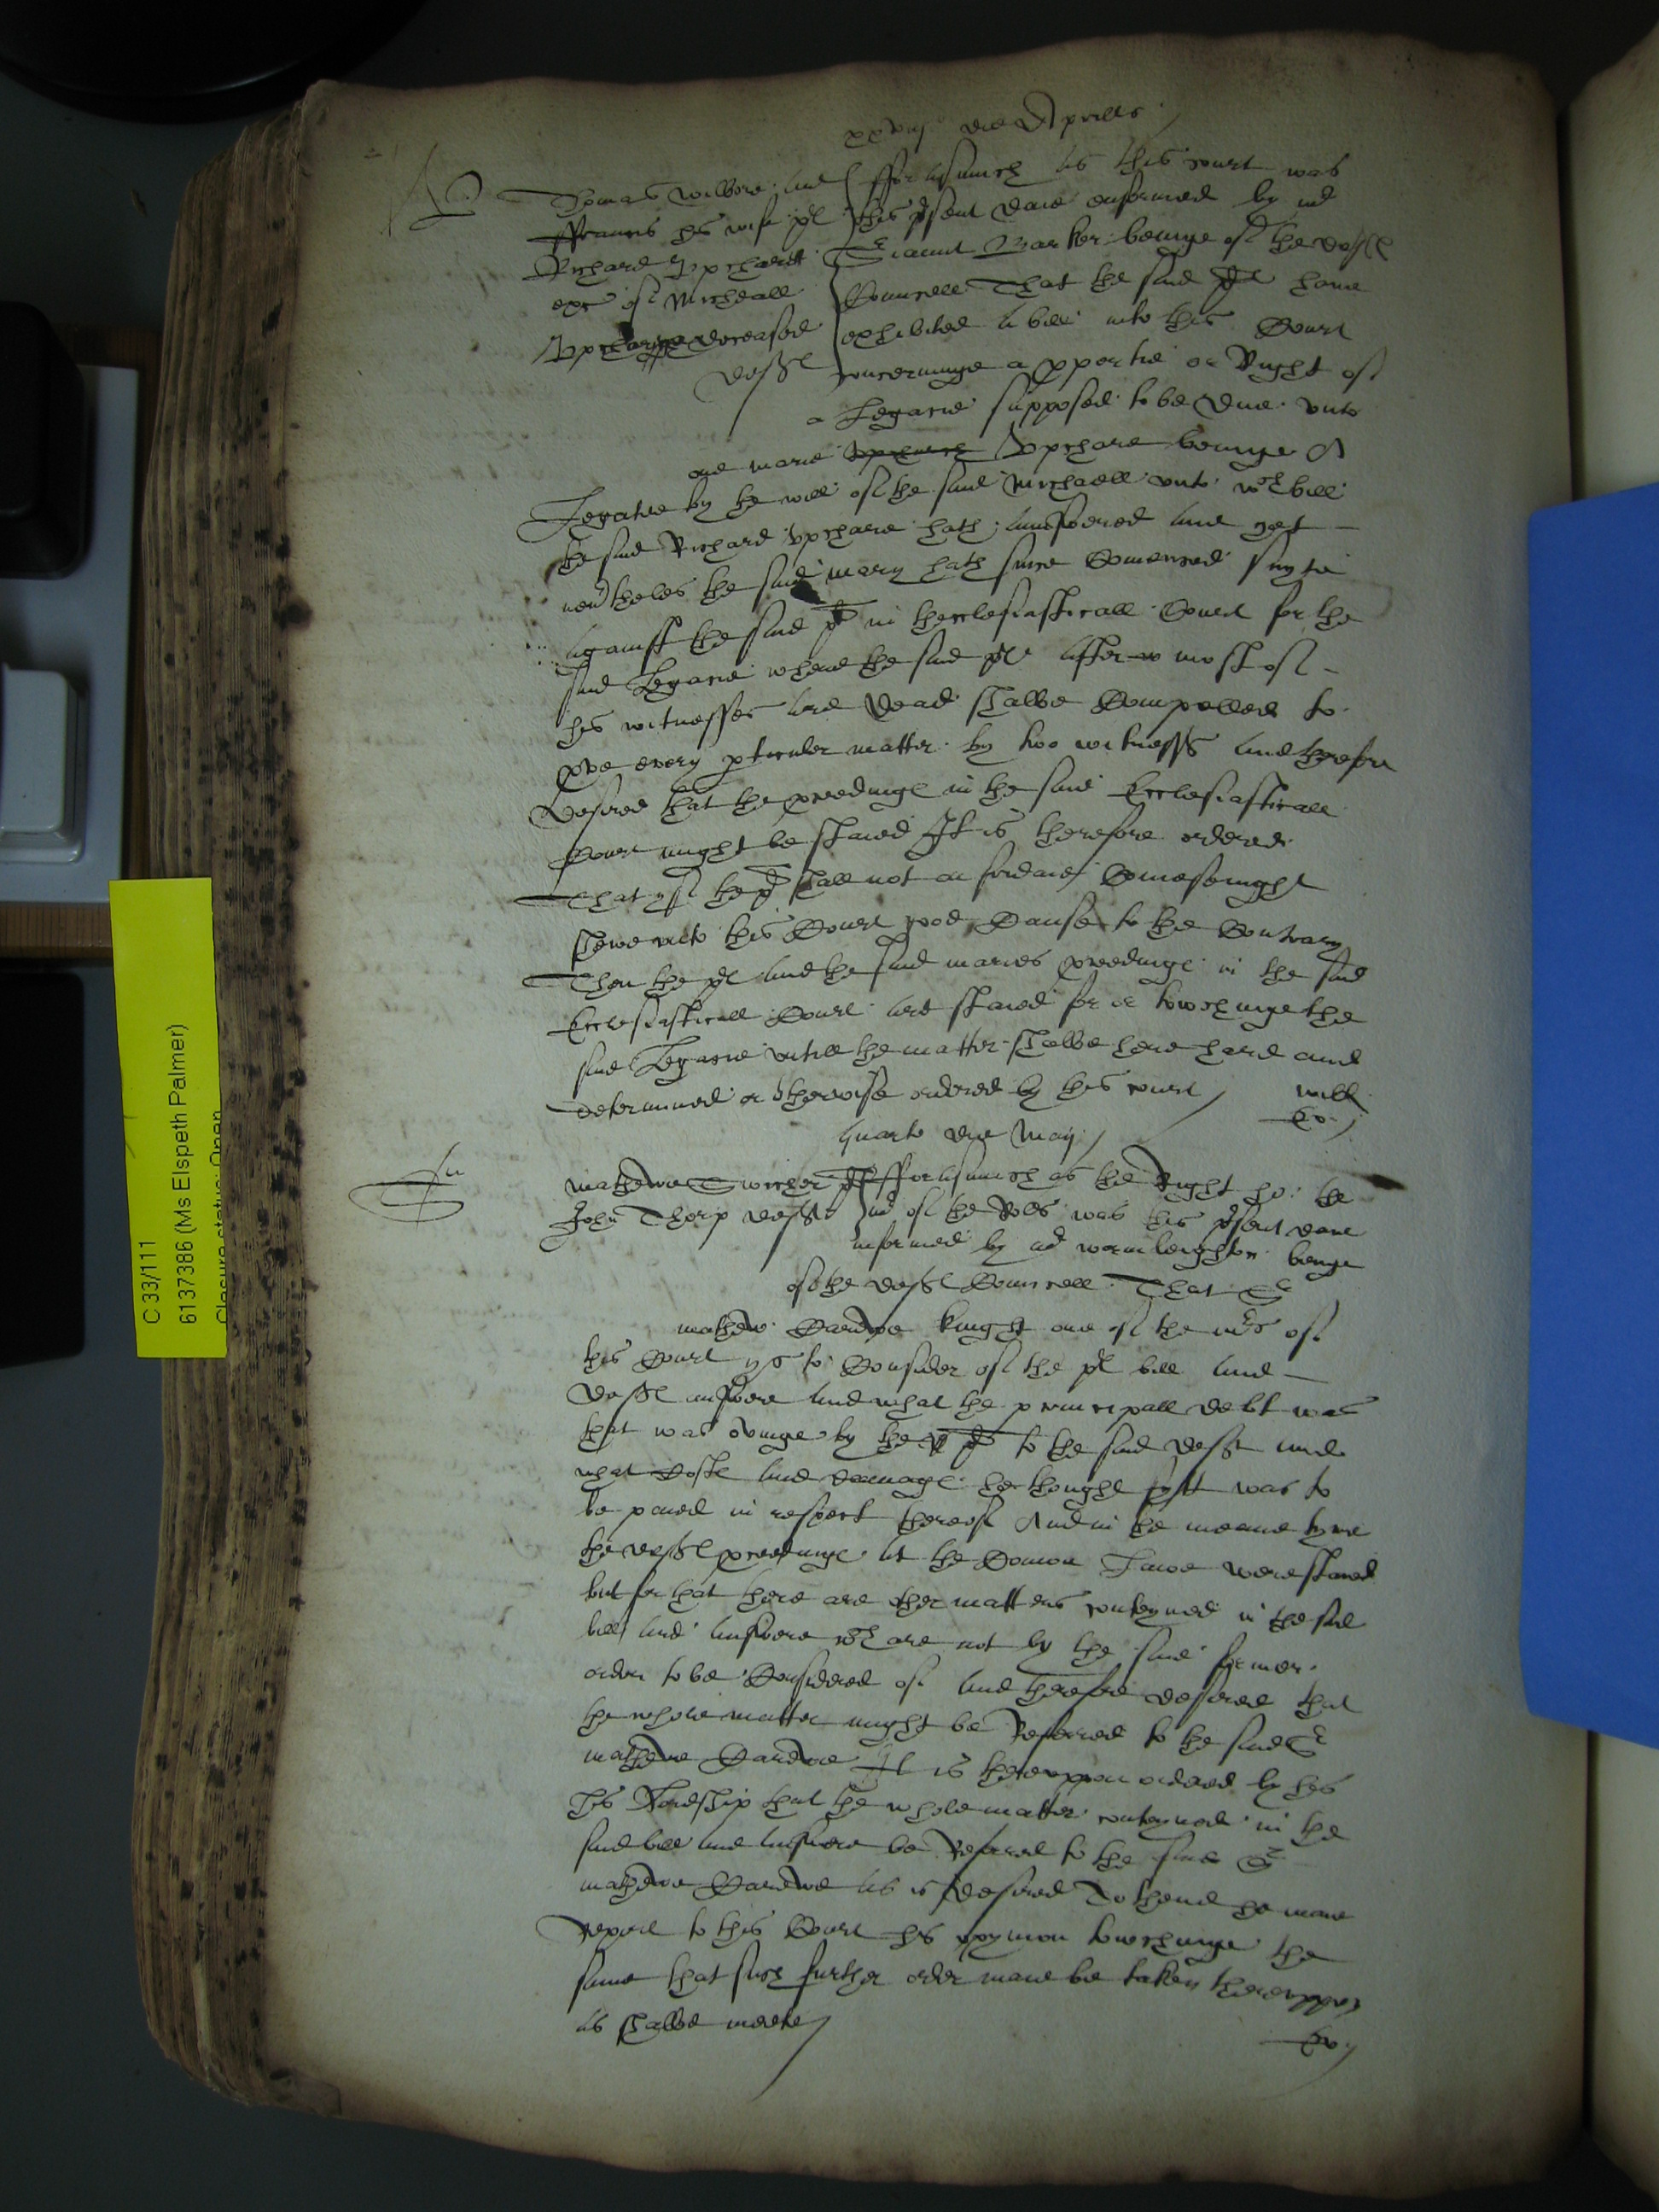 die Aprilis
Thomas Wilbore and fforasmuch as this court was
ffrancis his wife pl this psent daie enformed by mr
Richard Upchard Sriaunt Barker beinge of the deftes
exr of Michaell Councell That the said pl have
deceased exhibited a bill into this Court
deftes concerninge a pporcie or Right of
a Legacie supposed to be due unto
one Marie Upchare beinge A
Legatee by the will of the said Michaell unto wch bill
the said Richard Upchare hath aunswered and yet
nevtheles the said Mary hath since Comenced suyte
against the said in thecclesiasticall Court for the
said Legacie where the said after most of
his witnesses are dead shalbe Compelled to
prve every pticuler matter by two witnesses and therefore
desired that the pceedinges in the said Ecclesiasticall
Court might be staied It is therefore ordered
That yf the shall not on Comesenight
shewe unto this Court good Cause to the Contrary
Then the pl and the said Maries pceedinges in the said
Ecclesiasticall Court are staied for or towchinge the
said Legacie untill the matter shalbe here hard and
determined or otherwise ordered by this court
Quarto die Maij
Mathewe pl fforasmuch as the Right ho: the
John Thorp deft mr of the Rolls was this psent daie
informed by mr Wormleighton beinge
of the deftes Councell That Sr
Mathew Carewe knight one of the mrs of
this Court ys to Consider of the pl bill and
deftes aunswere and what the principall debt was
that was owinge by the pl to the said deft and
what Costes and damages he thought fytt was to
be paied in respect thereof And in the meane tyme
the deftes pceedinges at the Comon Lawe were staied
but for that there are other matters conteyned in the said
bill and aunswere wch are not by the said former
order to be Considered of and therefore desired that
the whole matter might be Referred to the said Sr
Mathewe Carewe It is thereuppon ordered by his
his Lordship that the whole matter conteyned in the
said bill and aunswere be Referred to the said Sr
Mathewe Carewe as is desired To thend he maie
Report to this Court his opynion towchinge the
same that such further order maie be taken thereuppon
as shalbe meete
C 33/111
6137386 (Ms Elspeth Palmer)
Closure status: Open